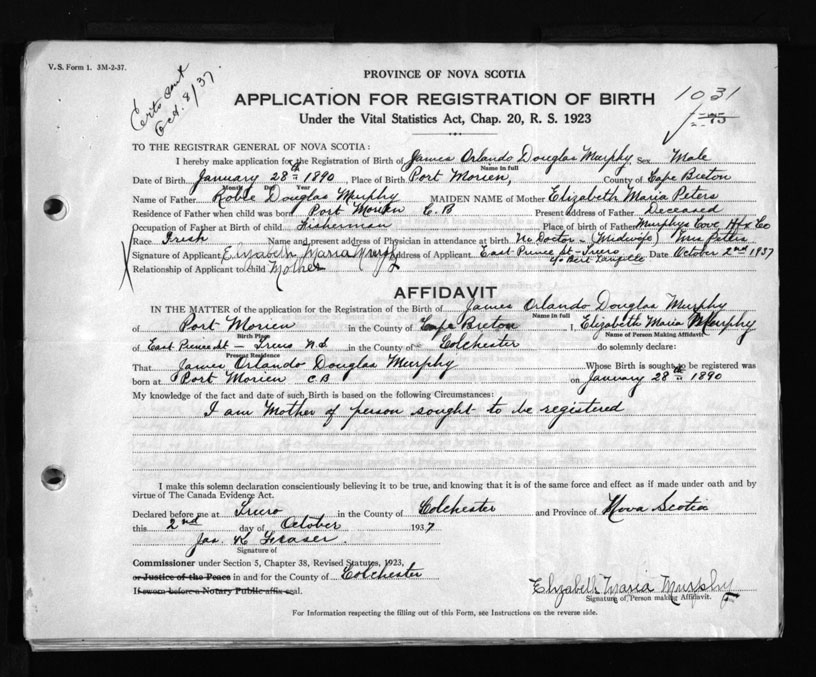 V. S. Form 1. 3M-2-37.
Oct. 8/37
PROVINCE OF NOVA SCOTIA
1031
APPLICATION FOR REGISTRATION OF BIRTH
75
Under the Vital Statistics Act, Chap. 20, R. S. 1923
TO THE REGISTRAR GENERAL OF NOVA SCOTIA:
I hereby make application for the Registration of Birth of James Orlando Douglas Murphy Sex Male
Name in full
Date of Birth January 28th 1890, Place of Birth Port Morien, County of Cape Breton
Month Day Year
Name of Father Douglas Murphy MAIDEN NAME of Mother Elizabeth Maria Peters
Residence of Father when child was born Port Morien C.B Present address of Father Deceased
Occupation of Father at Birth of child Fisherman Place of birth of Father Murphys Cove, Hfx Co
Race Irish Name and present address of Physician in attendance at birth No Doctor - (Midwife) Mrs Peters
Signature of Applicant Elizabeth Maria Murphy Address of Applicant East Prince St - Truro Date October 2nd 1937
c/o Bert
Relationship of Applicant to child Mother
AFFIDAVIT
IN THE MATTER of the application for the Registration of the Birth of James Orlando Douglas Murphy
Name in full
of Port Morien in the County of Cape Breton I, Elizabeth Maria Murphy
Birth Place Name of Person Making Affidavit
of East Prince St - Truro N.S in the County of Colchester do solemnly declare:
Present Residence
That James Orlando Douglas Murphy Whose Birth is sought to be registered was
born at Port Morien C B on January 28th 1890
My knowledge of the fact and date of such Birth is based on the following Circumstances:
I am Mother of person sought to be registered
I make this solemn declaration conscientiously believing it to be true, and knowing that it is of the same force and effect as if made under oath and by
virtue of The Canada Evidence Act.
Declared before me at Truro in the County of Colchester and Province of Nova Scotia
this 2nd day of October 1937
Jas. K Fraser.
Signature of
Commissioner under Section 5, Chapter 38, Revised Statutes, 1923,
or Justice of the Peace in and for the County of Colchester
If sworn before a Notary Public affix seal.
Elizabeth Maria Murphy
Signature of Person making Affidavit.
For Information respecting the filling out of this Form, see Instructions on the reverse side.